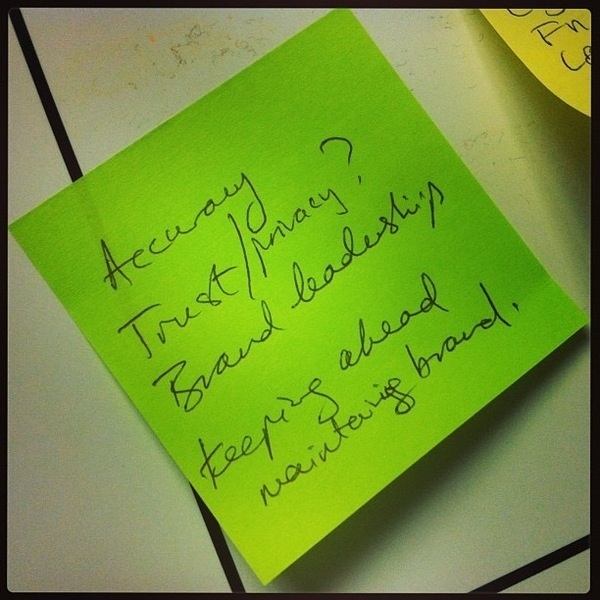 Accuracy
Trust/privacy?
Brand leadership
keeping ahead
maintaining brand.
In